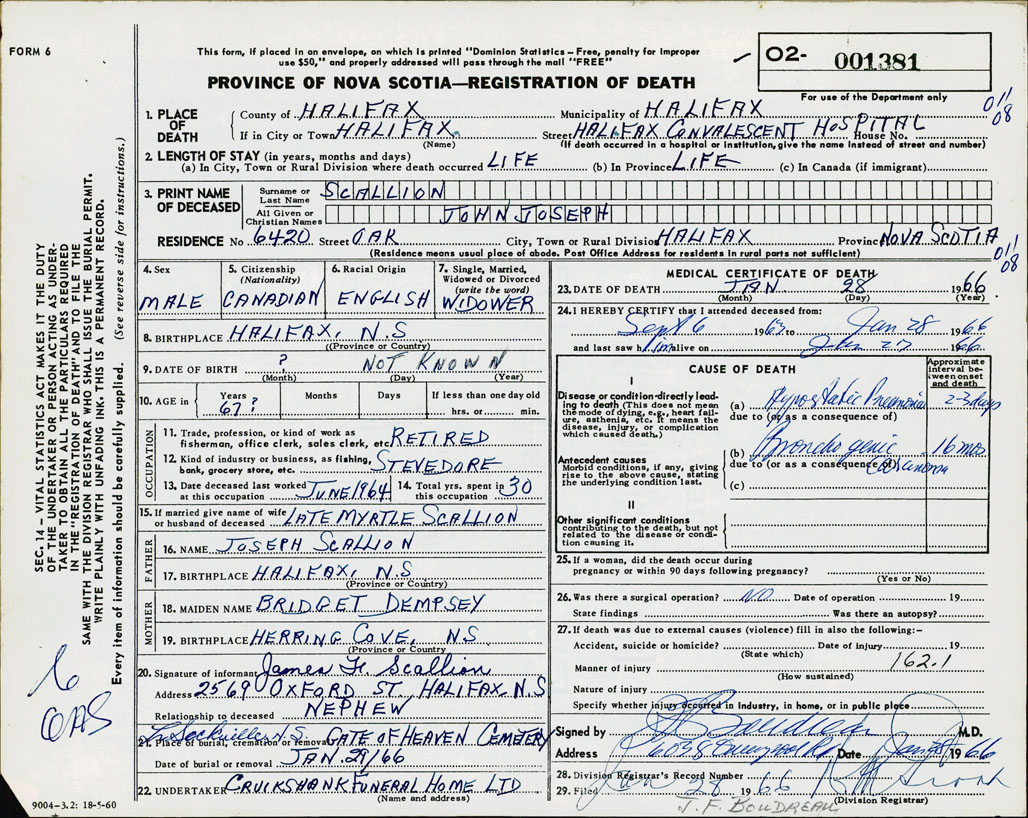 FORM 6
This form, if placed in an envelope, on which is printed "Dominion Statistics – Free, penalty for improper
use $50," and properly addressed will pass through the mail "FREE"
PROVINCE OF NOVA SCOTIA—REGISTRATION OF DEATH
02- 001381
For use of the Department only
011
08
1. PLACE OF DEATH
County of HALIFAX Municipality of HALIFAX
If in City or Town HALIFAX Street HALIFAX CONVALESCENT HOSPITAL House No.
(Name) (If death occurred in a hospital or institution, give the name instead of street and number)
2. LENGTH OF STAY (in years, months and days)
(a) In City, Town or Rural Division where death occurred LIFE (b) In Province LIFE (c) In Canada (if immigrant)
3. PRINT NAME OF DECEASED
Surname or Last Name SCALLION
All Given or Christian Names JOHN JOSEPH
RESIDENCE No 6420 Street OAK City, Town or Rural Division HALIFAX Province NOVA SCOTIA
(Residence means usual place of abode. Post Office Address for residents in rural parts not sufficient)
011
08
4. Sex MALE
5. Citizenship (Nationality) CANADIAN
6. Racial Origin ENGLISH
7. Single, Married, Widowed or Divorced (write the word) WIDOWER
8. BIRTHPLACE HALIFAX, N.S
(Province or Country)
9. DATE OF BIRTH ? NOT KNOWN
(Month) (Day) (Year)
10. AGE in Years 67? Months Days If less than one day old hrs. or min.
OCCUPATION
11. Trade, profession, or kind of work as fisherman, office clerk, sales clerk, etc. RETIRED
12. Kind of industry or business, as fishing, bank, grocery store, etc. STEVEDORE
13. Date deceased last worked at this occupation JUNE 1964
14. Total yrs. spent in this occupation 30
15. If married give name of wife or husband of deceased LATE MYRTLE SCALLION
FATHER
16. NAME JOSEPH SCALLION
17. BIRTHPLACE HALIFAX, N.S
(Province or Country)
MOTHER
18. MAIDEN NAME BRIDGET DEMPSEY
19. BIRTHPLACE HERRING COVE, N.S
(Province or Country)
20. Signature of informant James F. Scallion
Address 2569 OXFORD ST. HALIFAX N.S
Relationship to deceased NEPHEW
21. Place of burial, cremation or removal Sackville N.S. GATE OF HEAVEN CEMETERY
Date of burial or removal JAN. 29/66
22. UNDERTAKER CRUIKSHANK FUNERAL HOME LTD
(Name and address)
MEDICAL CERTIFICATE OF DEATH
23. DATE OF DEATH JAN 28 1966
(Month) (Day) (Year)
24. I HEREBY CERTIFY that I attended deceased from:
Sept 6 1963 to Jan 28 1966
and last saw him alive on Jan 27 1966
CAUSE OF DEATH
Approximate interval between onset and death
I
Disease or condition directly leading to death (This does not mean the mode of dying, e.g., heart failure, asthenia, etc. It means the disease, injury, or complication which caused death.)
(a) Hypostatic Pneumonia 2-3 days
due to (or as a consequence of)
Antecedent causes
Morbid conditions, if any, giving rise to the above cause, stating the underlying condition last.
(b) Bronchogenic Carcinoma 16 mos
due to (or as a consequence of)
(c)
II
Other significant conditions
contributing to the death, but not related to the disease or condition causing it.
25. If a woman, did the death occur during
pregnancy or within 90 days following pregnancy?
(Yes or No)
26. Was there a surgical operation? NO Date of operation 19
State findings Was there an autopsy?
27. If death was due to external causes (violence) fill in also the following:–
Accident, suicide or homicide? Date of injury 19
(State which)
Manner of injury 162.1
(How sustained)
Nature of injury
Specify whether injury occurred in industry, in home, or in public place
Signed by Boudreau M.D.
Address 6038 Date Jan 28 1966
28. Division Registrar's Record Number
29. Filed Jan 28 1966
(Division Registrar)
J. F. BOUDREAU
SEC. 14 – VITAL STATISTICS ACT MAKES IT THE DUTY
OF THE UNDERTAKER OR PERSON ACTING AS UNDER-
TAKER TO OBTAIN ALL THE PARTICULARS REQUIRED
IN THE "REGISTRATION OF DEATH" AND TO FILE THE
SAME WITH THE DIVISION REGISTRAR WHO SHALL ISSUE THE BURIAL PERMIT.
WRITE PLAINLY WITH UNFADING INK. THIS IS A PERMANENT RECORD.
Every item of information should be carefully supplied. (See reverse side for instructions.)
OAS
9004–3.2: 18-5-60